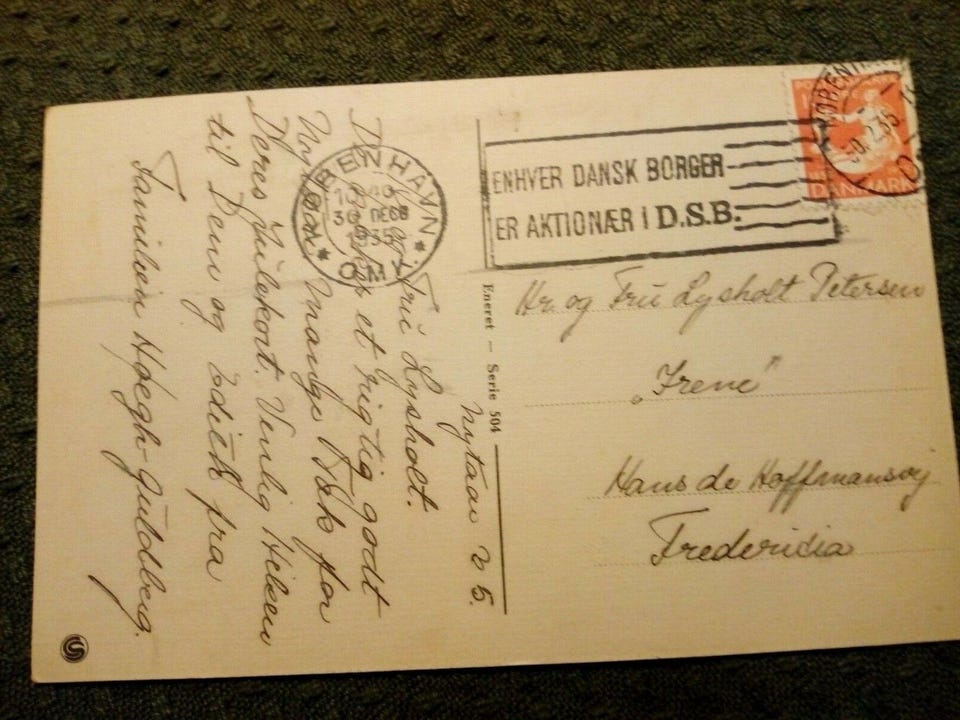 ENHVER DANSK BORGER
ER AKTIONÆR I D.S.B.
KØBENHAVN
30 DECB
1935
OMK.
DANMARK
Nytaar
Fru Lysholt.
et rigtig godt
Nytaar. Mange Tak for
Deres Julekort. Venlig Hilsen
til Dem og Edith fra
Familien Høegh-Guldberg.
Eneret – Serie 504
Hr. og Fru Lysholt Petersen
„Irene"
Hans de Hoffmansvej
Fredericia